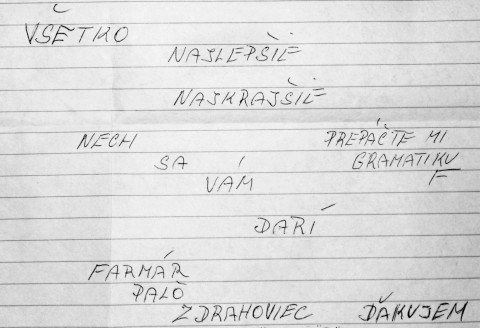 VŠETKO
NAJLEPŠIE
NAJKRAJŠIE
NECH
SA
VÁM
DARÍ
PREPÁČTE MI
GRAMATIKU
F
FARMÁR
PAĽO
ZDRAHOVIEC
ĎAKUJEM